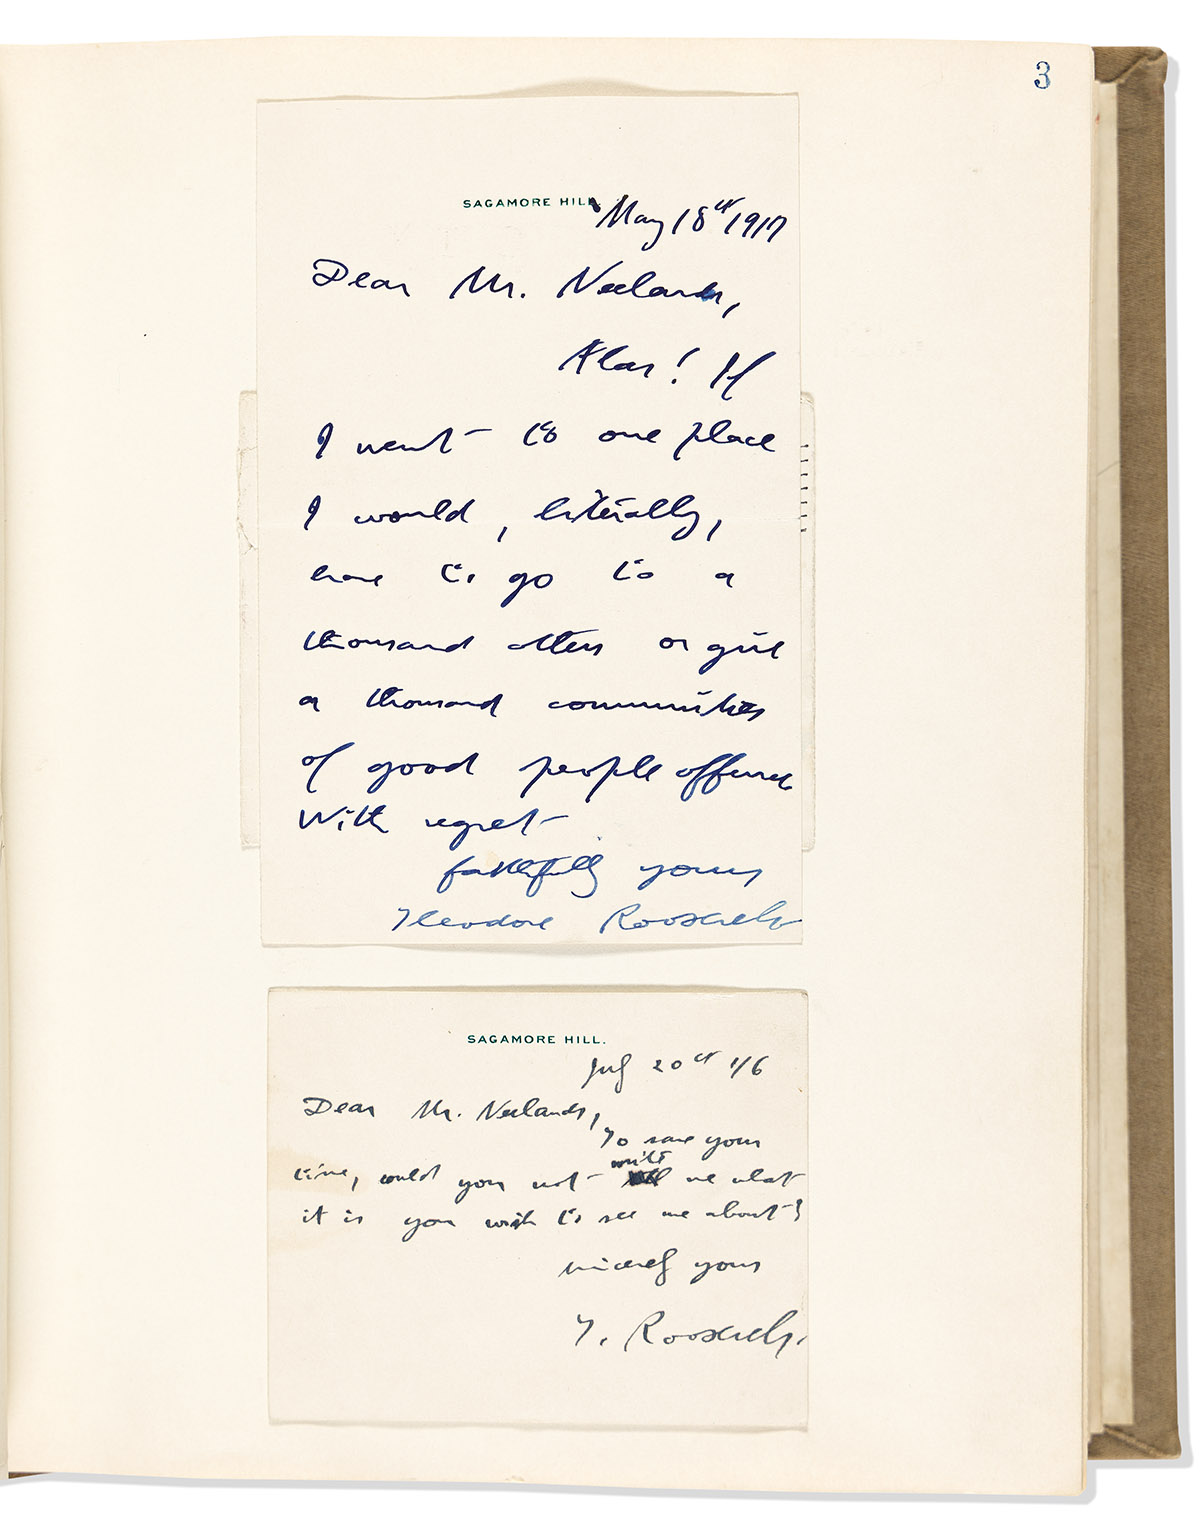 3
SAGAMORE HILL.
May 18th 1917
Dear Mr. Neelands,
Alas! If
I went to one place
I would, literally,
have to go to a
thousand others or give
a thousand communities
of good people offense
With regret
faithfully yours
Theodore Roosevelt
SAGAMORE HILL.
July 20th 1/6
Dear Mr. Neelands,
To save your
time, could you not write me what
it is you wish to see me about?
sincerely yours
T. Roosevelt.